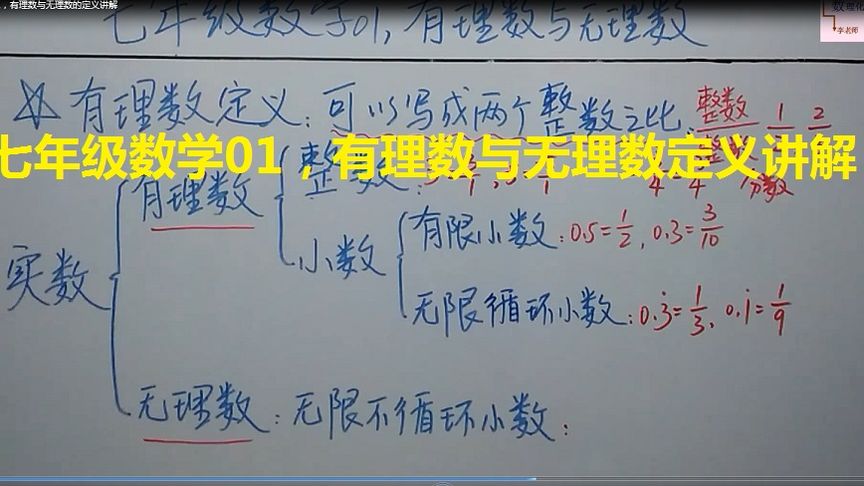 ，有理数与无理数的定义讲解
七年级数学01,有理数与无理数
数理化
李老师
☆ 有理数定义：可以写成两个整数之比. 整数 1 2
七年级数学01，有理数与无理数定义讲解
有理数 整数：
分数
小数 有限小数：0.5=1/2, 0.3=3/10
实数
无限循环小数：0.3̇=1/3, 0.1̇=1/9
无理数：无限不循环小数：